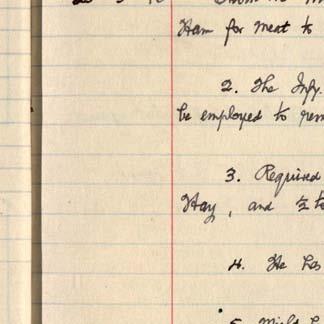 Ham for meat to
2. The Infy.
be employed to rem
3. Required
Hay, and ½ to
4. He has
5.